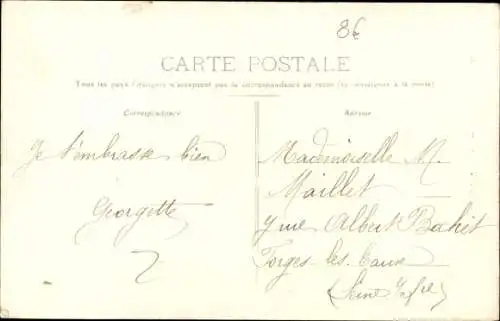 86
CARTE POSTALE
Tous les pays étrangers n'acceptent pas la correspondance au recto (se renseigner à la poste)
Correspondance
Adresse
Je t'embrasse bien
Georgette
Mademoiselle M.
Maillet
rue Albert Bahet
Forges-les-Eaux
(Seine Infre)